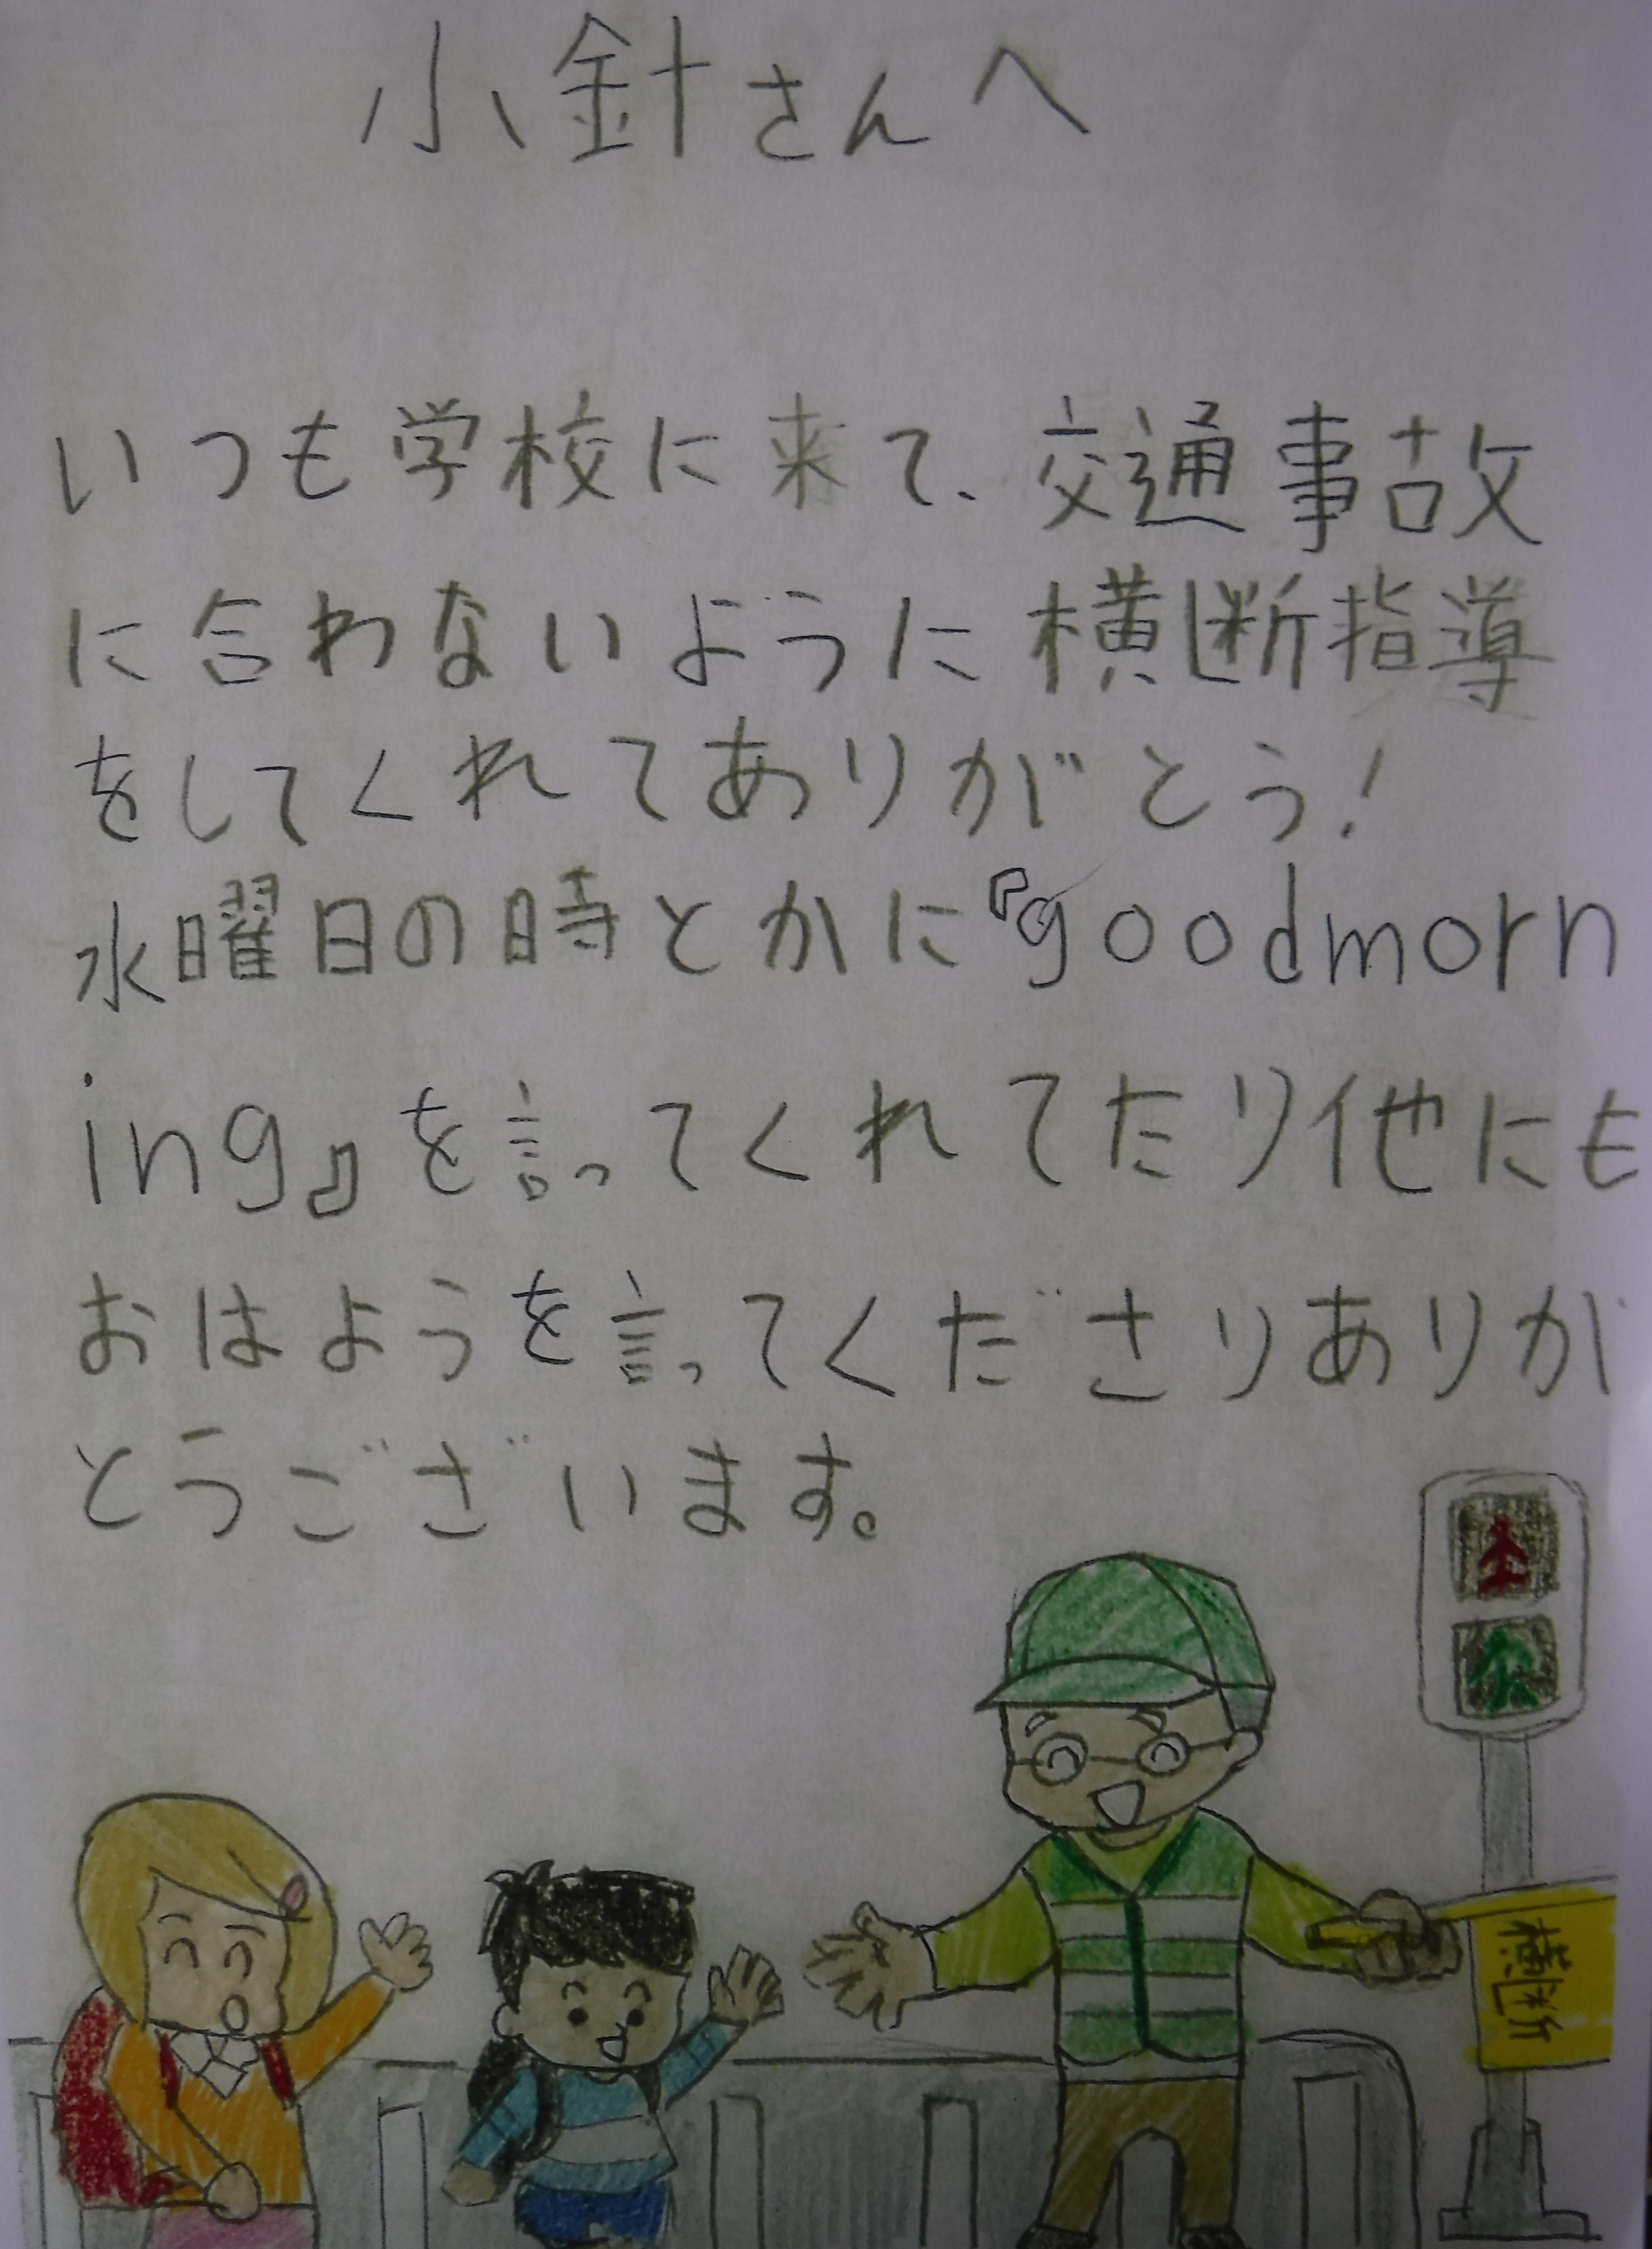 小針さんへ
いつも学校に来て、交通事故
に合わないように横断指導
をしてくれてありがとう!
水曜日の時とかに『goodmorn
ing』を言ってくれてたり他にも
おはようを言ってくださりありが
とうございます。
横断